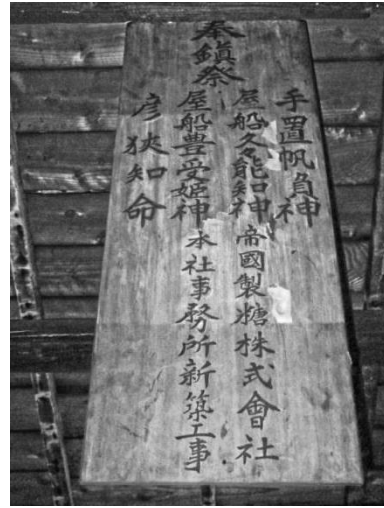 奉鎮祭
手置帆負神
屋船久々能智神 帝國製糖株式會社
屋船豊受姫神 本社事務所新築工事
彦狹知命